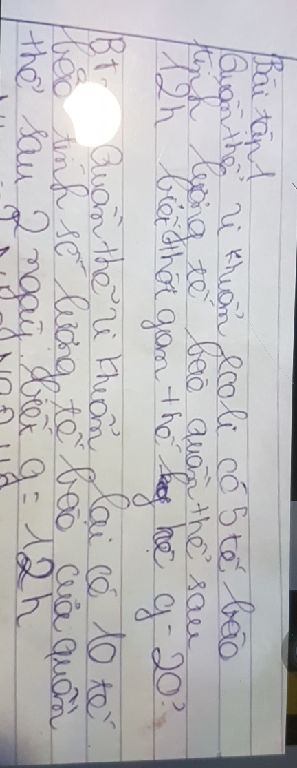 Bài tập 1
Quần thể vi khuẩn Ecoli có 5 tế bào
tính lượng tế bào quần thể sau
12h biết thời gian thế hệ g = 20'.
Bt Quần thể vi khuẩn lại có 10 tế
bào tính số lượng tế bào của quần
thể sau 2 ngày. biết g = 12h